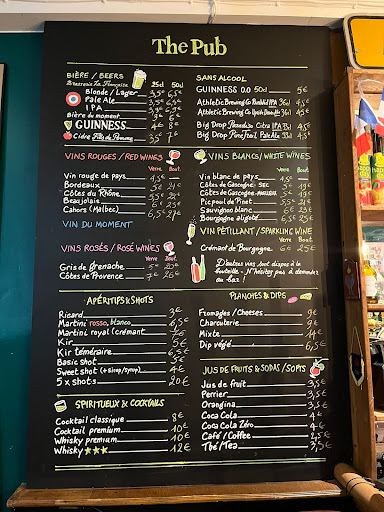 The Pub
BIÈRE / BEERS 25cl 50cl
Brasserie La Française
Blonde / Lager 3,5€ 6,5€
Pale Ale
IPA
Bière du moment
GUINNESS 4€
Cidre Fils de Pomme 3,5€ 7€
VINS ROUGES / RED WINES
Verre Bout.
Vin rouge de pays
Bordeaux
Côtes du Rhône
Beaujolais
Cahors (Malbec)
VIN DU MOMENT
VINS ROSÉS / ROSÉ WINES
Verre Bout.
Gris de Grenache
Côtes de Provence 7€ 26€
APÉRITIFS & SHOTS
Ricard 3€
Martini rosso, bianco 6,5€
Martini royal (crémant) 7€
Kir 5€
Kir téméraire 6,5€
Basic shot 5€
Sweet shot (+ sirop/syrup) 4€
5 x shots 20€
SPIRITUEUX & COCKTAILS
Cocktail classique 8€
Cocktail premium 10€
Whisky premium 10€
Whisky ★★★ 12€
SANS ALCOOL
GUINNESS 0.0 50cl 5€
Athletic Brewing Co IPA 36cl 4,5€
Athletic Brewing Co 36cl 4,5€
Big Drop Paradiso Citra IPA 33cl 4,5€
Big Drop Pine Trail Pale Ale 33cl 4,5€
VINS BLANCS / WHITE WINES
Verre Bout.
Vin blanc de pays
Côtes de Gascogne: SEC 5€
Côtes de Gascogne: MOELLEUX
Picpoul de Pinet
Sauvignon blanc 6€ 23€
Bourgogne aligoté 6,5€ 25€
VIN PÉTILLANT / SPARKLING WINE
Verre Bout.
Crémant de Bourgogne 6€ 25€
D'autres vins sont dispos à la
bouteille - N'hésitez pas à demander
au bar !
PLANCHES & DIPS
Fromages / Cheeses 9€
Charcuterie 9€
Mixte
Dip végé 6,5€
JUS DE FRUITS & SODAS / SOFTS
Jus de fruit 3,5€
Perrier 3,5€
Orangina 3,5€
Coca Cola 4€
Coca Cola Zéro 4€
Café / Coffee 2,5€
Thé / Tea 3,5€